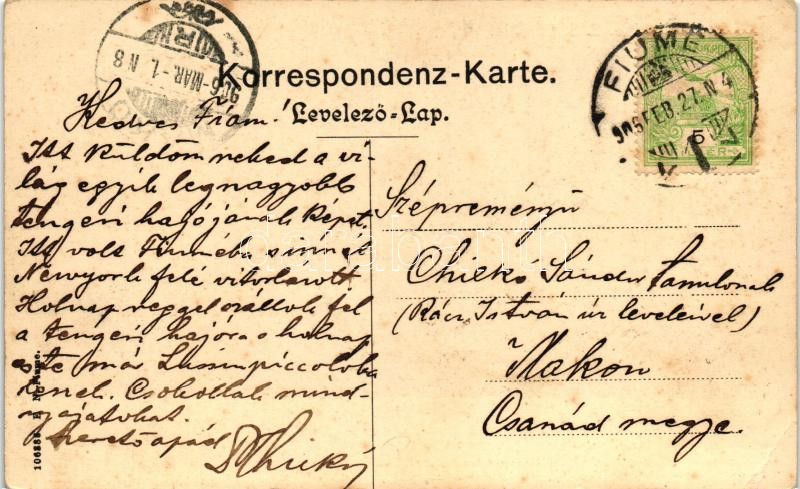 Korrespondenz-Karte.
Levelező-Lap.
FIUME
906 FEB. 27. N 4
906-MAR.-1. N 8
5
Kedves Fiam!
Itt küldöm neked a vi-
lág egyik legnagyobb
tengeri hajójának képét.
Itt volt Fiuméba s innét
Newyork felé vitorlázott.
Holnap reggel szállok fel
a tengeri hajóra s holnap
este már Lussinpiccoloba
leszek. Csokollak mind-
nyájatokat.
Szerető apád
Szépreményű
Sándor tanulónak
(Rácz István úr levelével)
Makon
Csanád megye.
darabanth